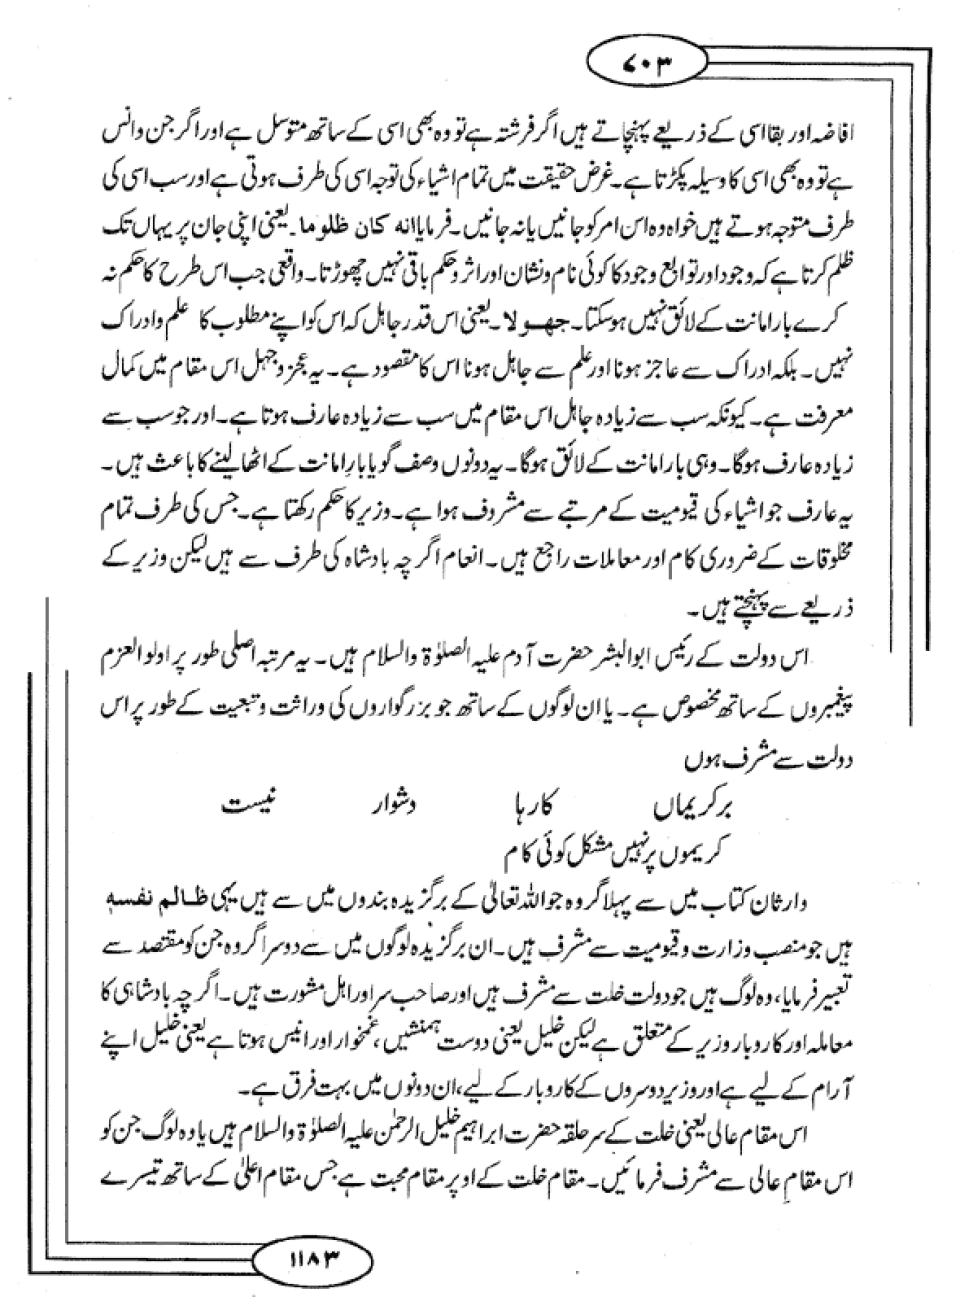 ۷۰۳
افاضہ اور بقا اسی کے ذریعے پہنچاتے ہیں اگر فرشتہ ہے تو وہ بھی اسی کے ساتھ متوسل ہے اور اگر جن و انس
ہے تو وہ بھی اسی کا وسیلہ پکڑتا ہے۔ غرض حقیقت میں تمام اشیاء کی توجہ اسی کی طرف ہوتی ہے اور سب اسی کی
طرف متوجہ ہوتے ہیں خواہ وہ اس امر کو جانیں یا نہ جانیں۔ فرمایا انه كان ظلوما۔ یعنی اپنی جان پر یہاں تک
ظلم کرتا ہے کہ وجود اور توابع وجود کا کوئی نام و نشان اور اثر و حکم باقی نہیں چھوڑتا۔ واقعی جب اس طرح کا حکم نہ
کرے بار امانت کے لائق نہیں ہو سکتا۔ جهولا۔ یعنی اس قدر جاہل کہ اس کو اپنے مطلوب کا علم و ادراک
نہیں۔ بلکہ ادراک سے عاجز ہونا اور علم سے جاہل ہونا اس کا مقصود ہے۔ یہ عجز و جہل اس مقام میں کمال
معرفت ہے۔ کیونکہ سب سے زیادہ جاہل اس مقام میں سب سے زیادہ عارف ہوتا ہے۔ اور جو سب سے
زیادہ عارف ہوگا۔ وہی بار امانت کے لائق ہوگا۔ یہ دونوں وصف گویا بارِ امانت کے اٹھا لینے کا باعث ہیں۔
یہ عارف جو اشیاء کی قیومیت کے مرتبے سے مشروف ہوا ہے۔ وزیر کا حکم رکھتا ہے۔ جس کی طرف تمام
مخلوقات کے ضروری کام اور معاملات راجع ہیں۔ انعام اگرچہ بادشاہ کی طرف سے ہیں لیکن وزیر کے
ذریعے سے پہنچتے ہیں۔
اس دولت کے رئیس ابوالبشر حضرت آدم علیہ الصلوٰۃ والسلام ہیں۔ یہ مرتبہ اصلی طور پر اولوالعزم
پیغمبروں کے ساتھ مخصوص ہے۔ یا ان لوگوں کے ساتھ جو بزرگواروں کی وراثت و تبعیت کے طور پر اس
دولت سے مشرف ہوں
بر کریماں کارہا دشوار نیست
کریموں پر نہیں مشکل کوئی کام
وارثان کتاب میں سے پہلا گروہ جو اللہ تعالیٰ کے برگزیدہ بندوں میں سے ہیں یہی ظالم نفسه
ہیں جو منصب وزارت و قیومیت سے مشرف ہیں۔ ان برگزیدہ لوگوں میں سے دوسرا گروہ جن کو مقتصد سے
تعبیر فرمایا، وہ لوگ ہیں جو دولت خلت سے مشرف ہیں اور صاحب سر اور اہل مشورت ہیں۔ اگرچہ بادشاہی کا
معاملہ اور کاروبار وزیر کے متعلق ہے لیکن خلیل یعنی دوست ہمنشیں، غمخوار اور انیس ہوتا ہے یعنی خلیل اپنے
آرام کے لیے ہے اور وزیر دوسروں کے کاروبار کے لیے، ان دونوں میں بہت فرق ہے۔
اس مقام عالی یعنی خلت کے سر حلقہ حضرت ابراہیم خلیل الرحمٰن علیہ الصلوٰۃ والسلام ہیں یا وہ لوگ جن کو
اس مقامِ عالی سے مشرف فرمائیں۔ مقام خلت کے اوپر مقام محبت ہے جس مقام اعلیٰ کے ساتھ تیسرے
۱۱۸۳